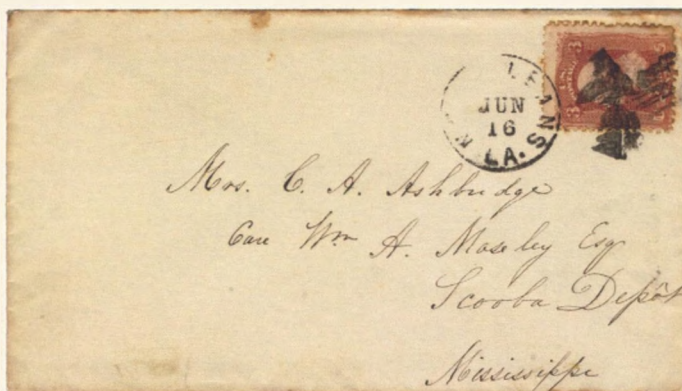 LEANS
JUN
16
LA.
3 3
Mrs. C. A. Ashbridge
Care Wm A. Moseley Esq
Scooba Depôt
Mississippi